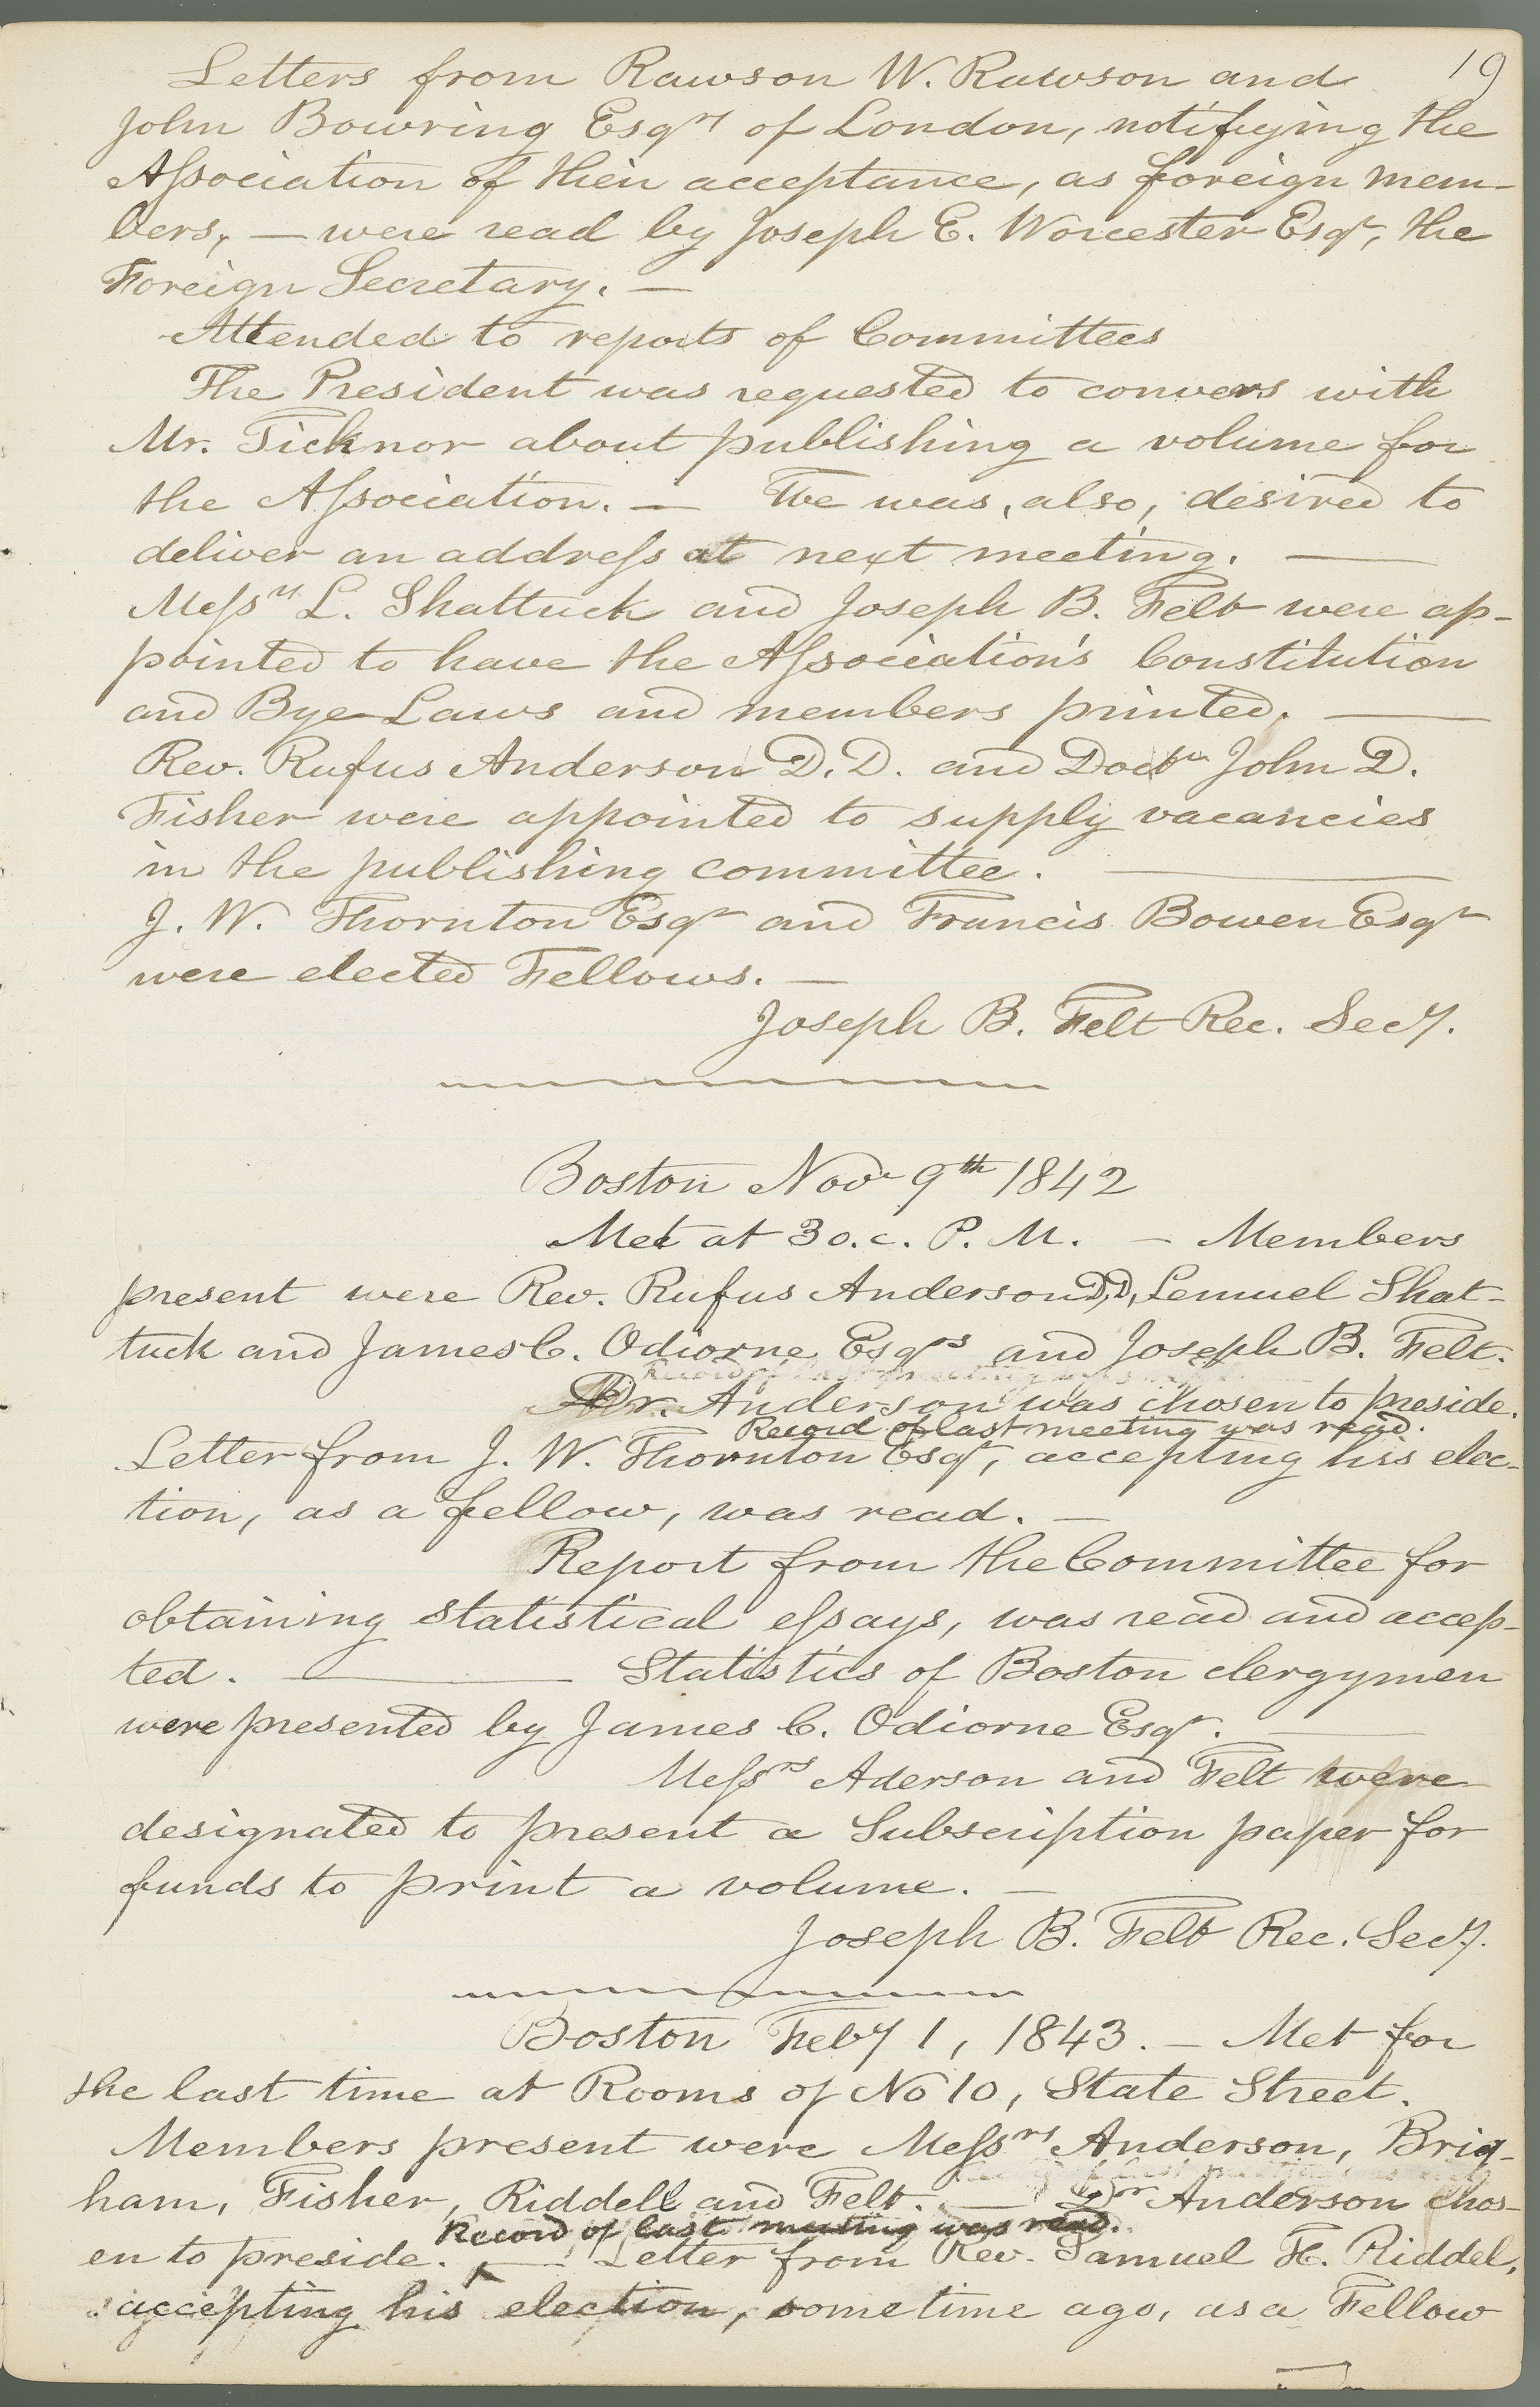 19
Letters from Rawson W. Rawson and
John Bowring Esqrs of London, notifying the
Association of their acceptance, as foreign mem-
bers, — were read by Joseph E. Worcester Esqr, the
Foreign Secretary. —
Attended to reports of Committees
The President was requested to convers with
Mr. Ticknor about publishing a volume for
the Association. — He was, also, desired to
deliver an address at next meeting. —
Messrs L. Shattuck and Joseph B. Felt were ap-
pointed to have the Association's Constitution
and Bye-Laws and members printed. —
Rev. Rufus Anderson D.D. and Doctr John D.
Fisher were appointed to supply vacancies
in the publishing committee. —
J. W. Thornton Esqr and Francis Bowen Esqr
were elected Fellows. —
Joseph B. Felt Rec. Secy.
Boston Novr 9th 1842
Met at 3 o.c. P. M. — Members
present were Rev. Rufus Anderson D,D, Lemuel Shat-
tuck and James C. Odiorne Esqrs and Joseph B. Felt.
Dr. Anderson was chosen to preside.
Record of last meeting was read.
Letter from J. W. Thornton Esqr, accepting his elec-
tion, as a fellow, was read. —
Report from the Committee for
obtaining statistical essays, was read and accep-
ted. — Statistics of Boston clergymen
were presented by James C. Odiorne Esqr. —
Messrs Aderson and Felt were
designated to present a Subscription paper for
funds to print a volume. —
Joseph B. Felt Rec. Secy.
Boston Feby 1, 1843. — Met for
the last time at Rooms of No 10, State Street.
Members present were Messrs Anderson, Brig-
ham, Fisher, Riddell and Felt. — Dr Anderson chos-
Record of last meeting was read.
en to preside. — Letter from Rev. Samuel H. Riddel,
accepting his election, sometime ago, as a Fellow